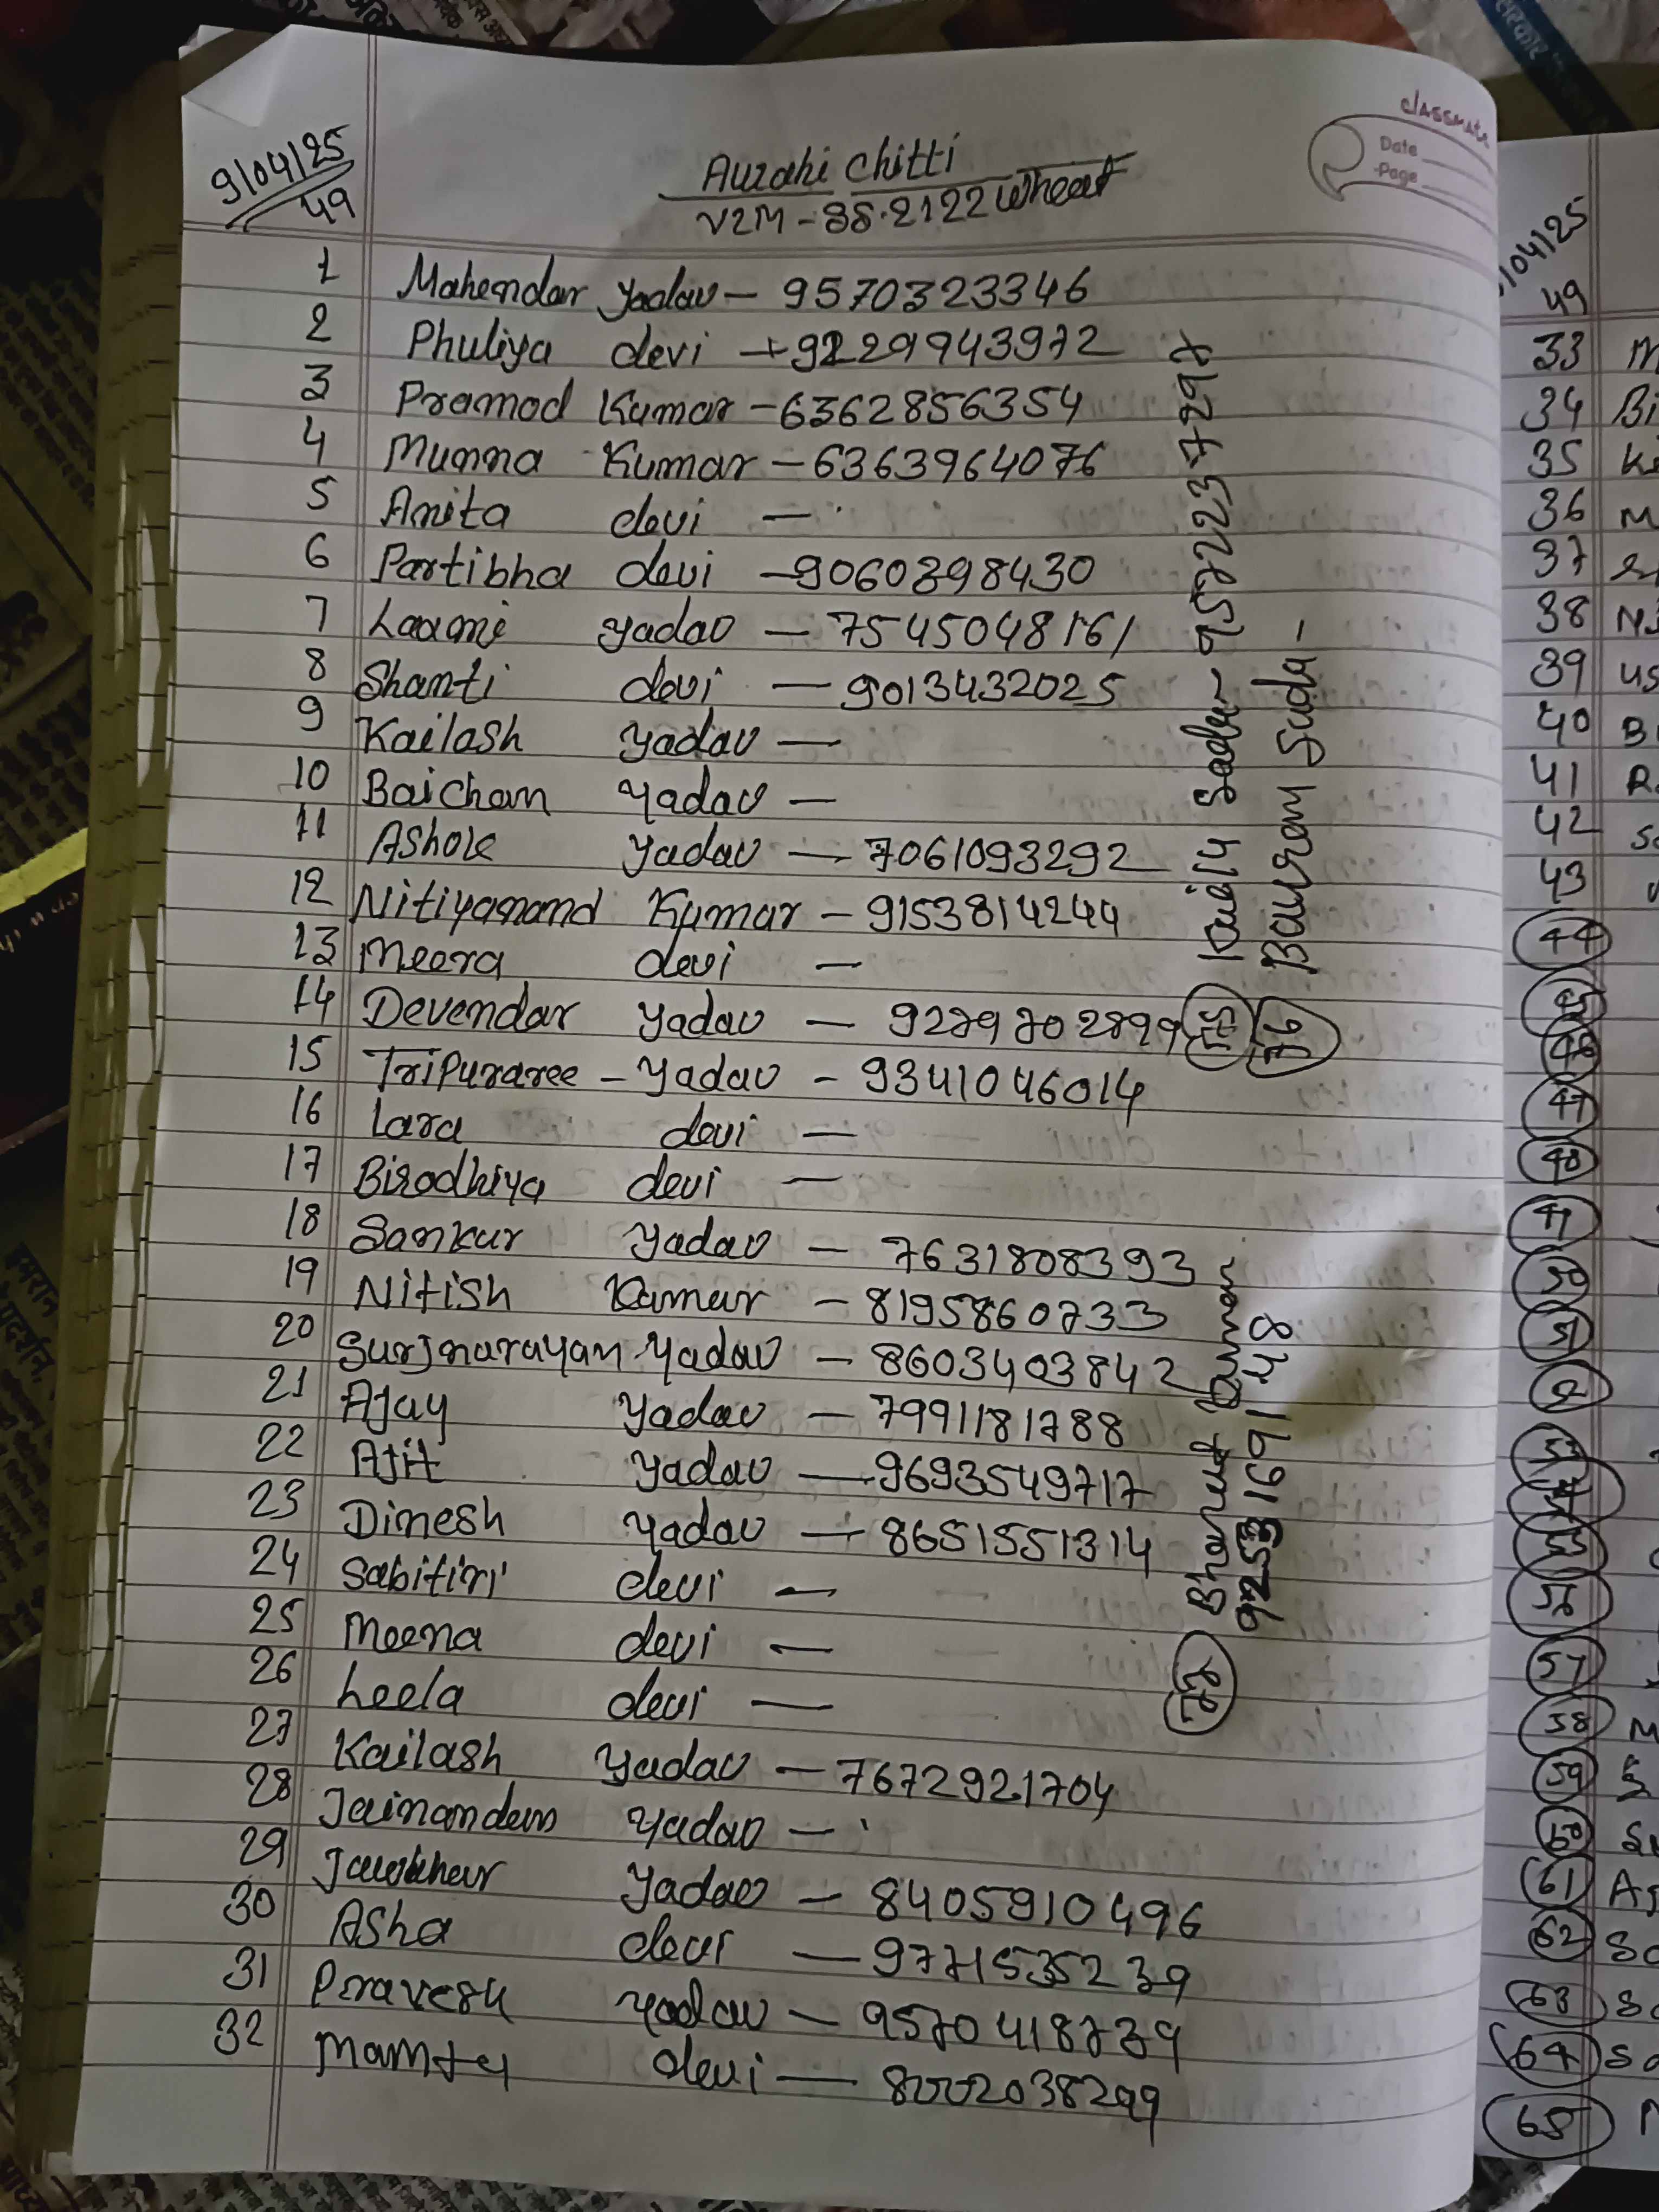 classmate
Date
Page
9/04/25
49
Aurahi Chitti
V2M-38.2122 Wheat
1 Mahendar Yadav - 9570323346
2 Phuliya devi - 9229943972
3 Pramod Kumar - 6362856354
4 Munna Kumar - 6363964076
5 Anita devi -
6 Partibha devi - 9060398430
7 Laxmi Yadav - 7545048161
8 Shanti devi - 9013432025
9 Kailash Yadav -
10 Baichan Yadav -
11 Ashok Yadav - 7061093292
12 Nitiyanand Kumar - 9153814244
13 Meera devi -
14 Devendar Yadav - 9279702899
15 Tripuraree - Yadav - 9341046014
16 Lara devi -
17 Birodhiya devi -
18 Sankur Yadav - 7631808393
19 Nitish Kumar - 8195860733
20 Surjnarayan Yadav - 8603403842
21 Ajay Yadav - 7991181788
22 Ajit Yadav - 9693549717
23 Dinesh Yadav - 8651551314
24 Sabitiri devi -
25 Meena devi -
26 Leela devi -
27 Kailash Yadav - 7672921704
28 Jainandan Yadav -
29 Jawahar Yadav - 8405910496
30 Asha devi - 9771535239
31 Pravesh Yadav - 9570418739
32 Mamty devi - 8002038299
75 Sadur - 9572237297
76 Bauram Suda -
Bharat Kumar
9253169148
/04/25
49
33 M
34 Bi
35
36 M
37
38 Ni
39 us
40 B
41 R
42 S
43
44
45
46
47
48
49
50
51
52
53
54
55
56
57
58 M
59
60 Su
61
62 Sa
63 Sa
64 Sa
65
सरकार